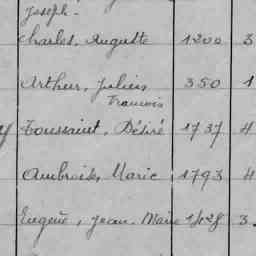 Joseph -
Charles, Auguste 1200 3
Arthur, Julien 350 1
Francois
Toussaint, Désiré 1737 4
Ambroise, Marie 1793 4
Eugène, Jean. Marie 1428 3.